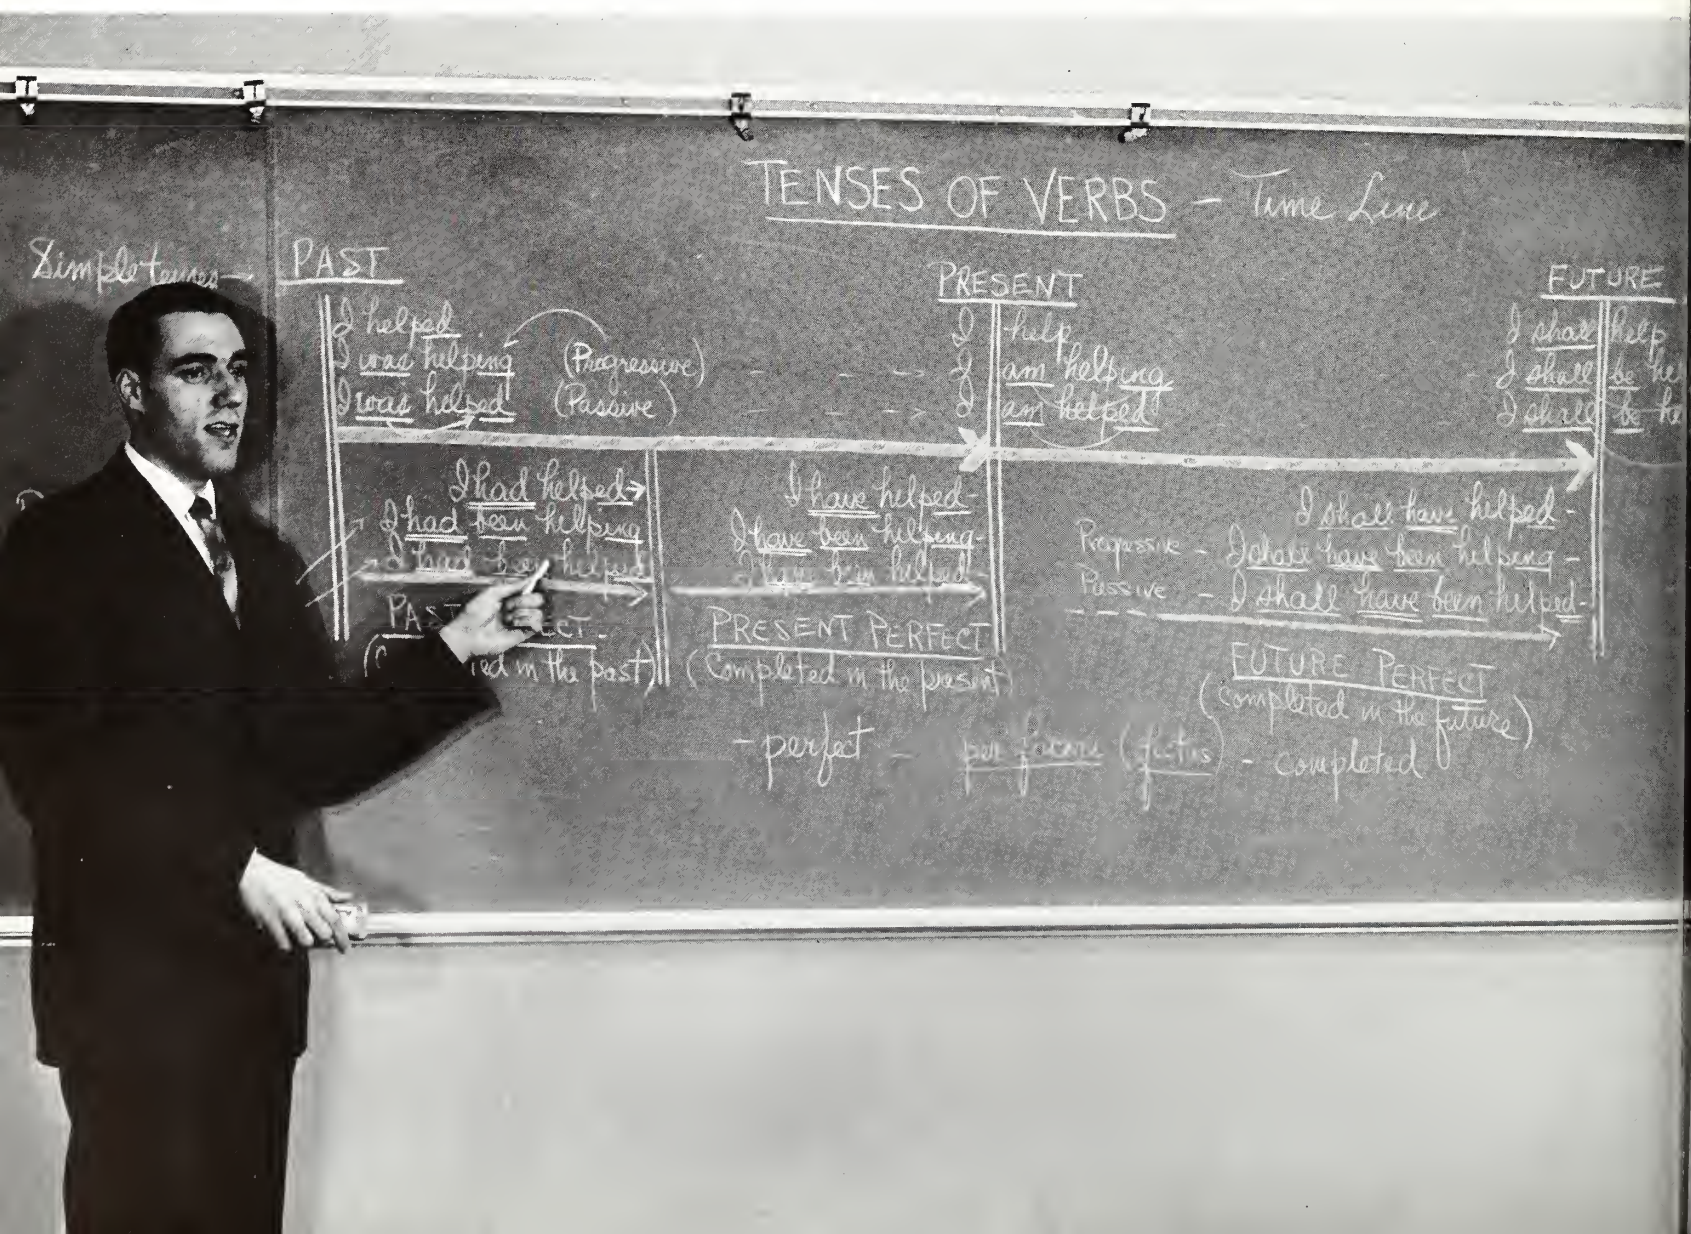 TENSES OF VERBS - Time Line
Simple tenses → PAST
PRESENT
FUTURE
I helped
I was helping (Progressive)
I was helped (Passive)
I help
I am helping
I am helped
I shall help
I shall be
I shall be
I had helped →
I had been helping
I had been helped
PAST
in the past)
I have helped -
I have been helping -
I have been helped -
PRESENT PERFECT
(Completed in the present)
I shall have helped -
Progressive - I shall have been helping -
Passive - I shall have been helped -
FUTURE PERFECT
(completed in the future)
- perfect - per (fectus) - completed